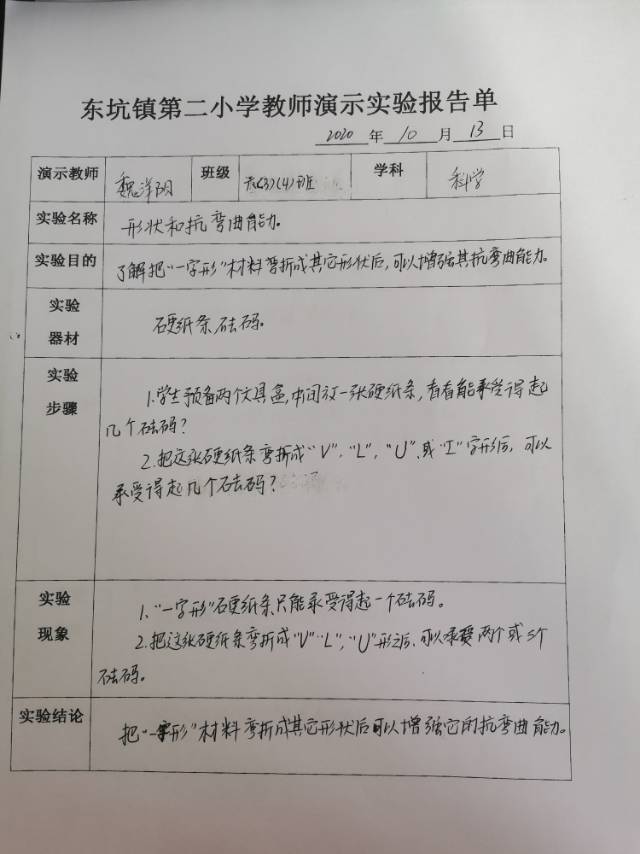 东坑镇第二小学教师演示实验报告单
2020 年 10 月 13 日
演示教师 魏洋阴 班级 (3)(4)班 学科 科学
实验名称 形状和抗弯曲能力。
实验目的 了解把"一字形"材料弯折成其它形状后,可以增强其抗弯曲能力。
实验
器材
硬纸条、砝码。
实验
步骤
1.学生预备两个文具盒,中间放一张硬纸条,看看能承受得起
几个砝码?
2.把这张硬纸条弯折成"V"、"L"、"U"、或"工"字形后,可以
承受得起几个砝码?
实验
现象
1、"一字形"硬纸条只能承受得起一个砝码。
2.把这张硬纸条弯折成"V"、"L"、"U"形之后,可以承受两个或3个
砝码。
实验结论 把"一字形"材料弯折成其它形状后可以增强它的抗弯曲能力。